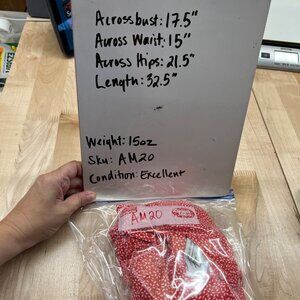 Across bust: 17.5"
Across Waist: 15"
Across Hips: 21.5"
Length: 32.5"
Weight: 15oz
Sku: AM20
Condition: Excellent
AM20